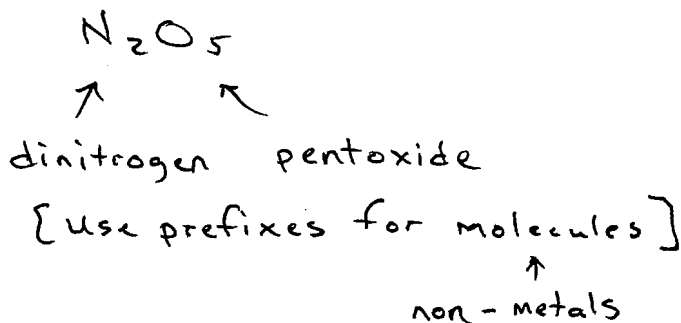 N₂O₅
dinitrogen pentoxide
[Use prefixes for molecules]
non-metals